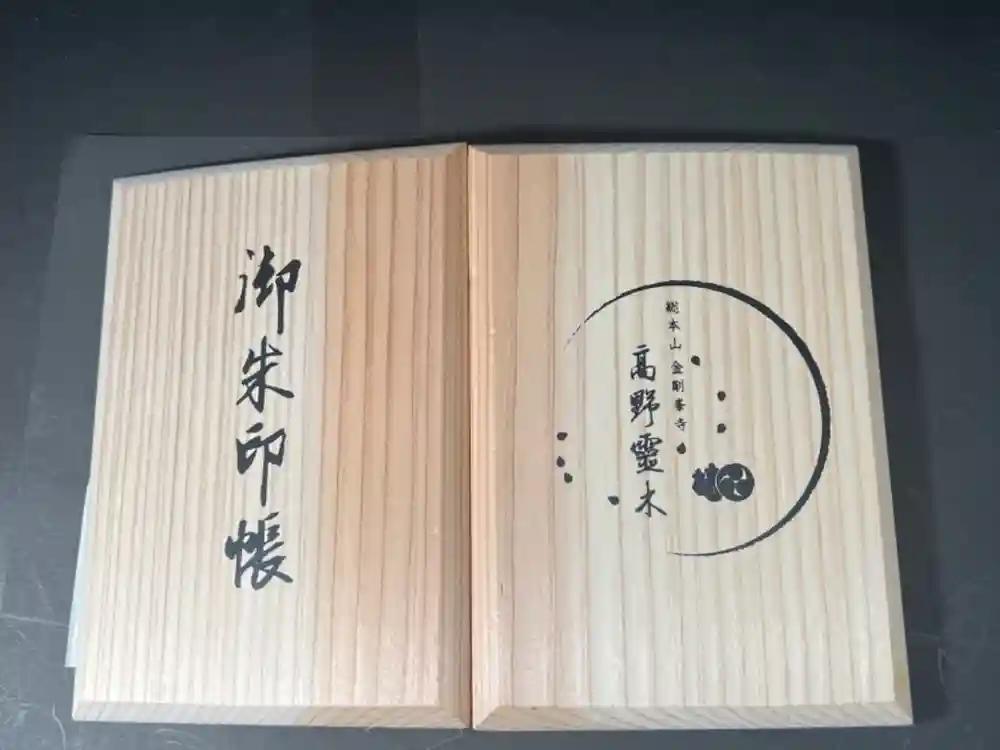 御朱印帳
総本山 金剛峯寺
高野靈木